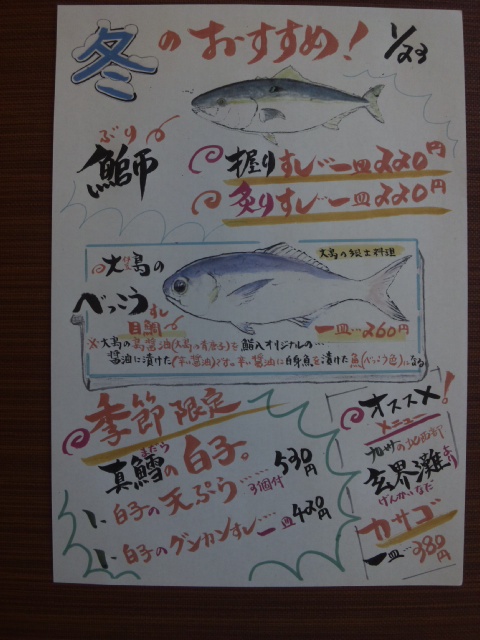 冬のおすすめ! 1/23
ぶり
鰤
握りすし…一皿220円
炙りすし…一皿220円
大島の郷土料理
大島の
べっこうすし
目鯛
一皿…260円
※大島の島醤油(大島の青唐辛子)を
醤油に漬けた(辛い醤油)です。辛い醤油に白身魚を漬けた魚(べっこう色)になる
季節限定
まだら
真鱈の白子。
白子の天ぷら…… 530円
3個付
白子のグンカンすし…一皿420円
オススメ!
メニュー
九州の北西部より
玄界灘
げんかいなだ
カサゴ
一皿…380円